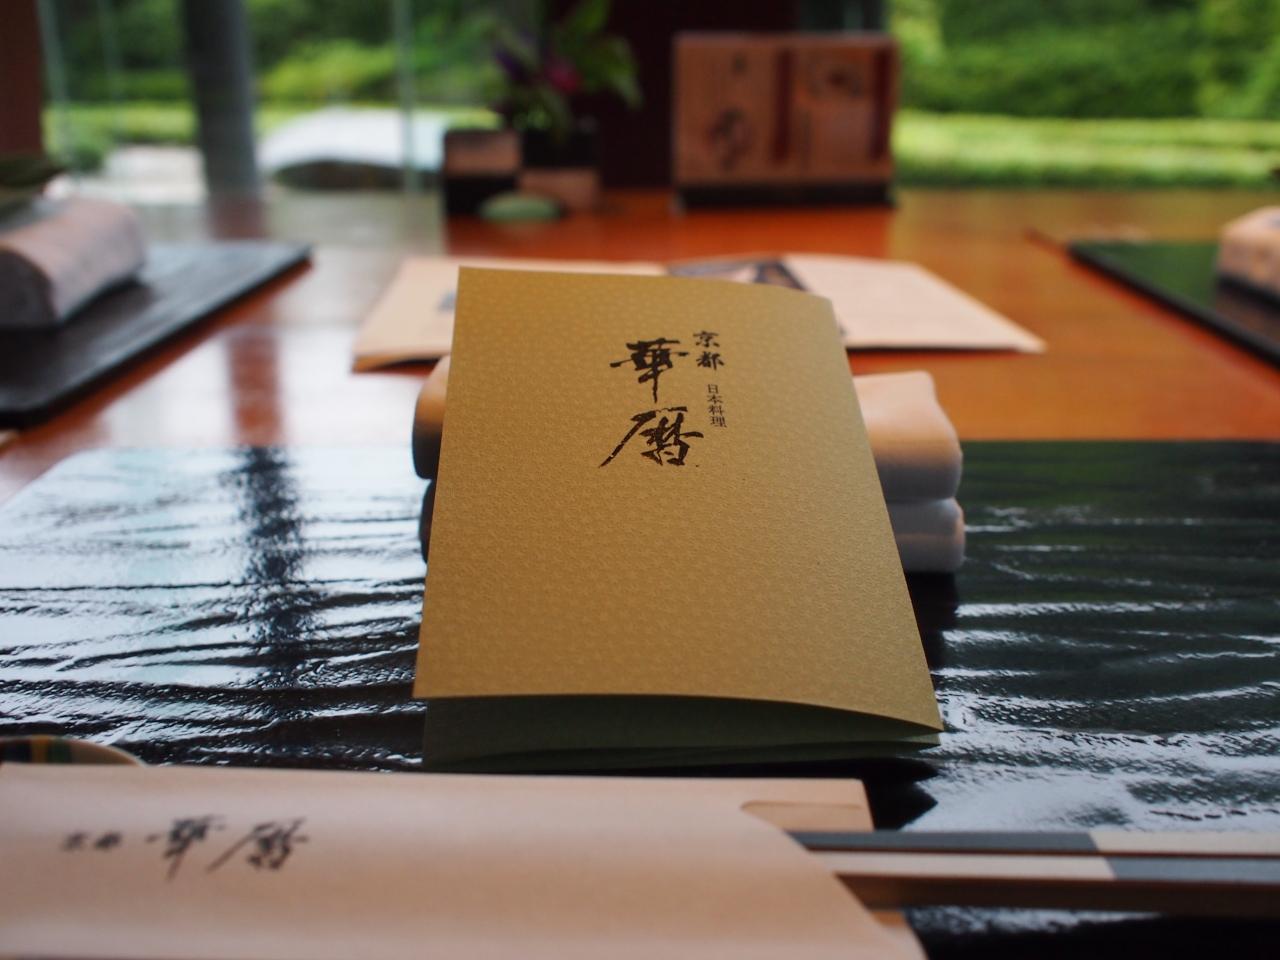 京都
日本料理
華暦
京都 華暦